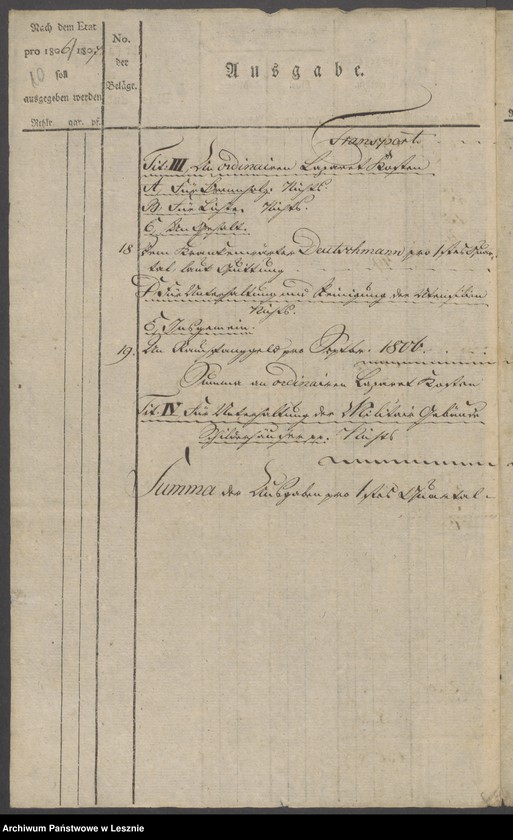 Nach dem Etat
pro 1806/1807
10 soll
ausgegeben werden
Rthlr. ggr. pf.
No.
der
Beläge.
Ausgabe.
Transport
Tit: III, An ordinairen Lazaret Kosten
A, Für Brennholz. Nichts
B, Für Lichte. Nichts.
C, An Gehalt.
18 dem Krankenwärter Deutschmann pro 1stes Quar-
tal, laut Quittung
D, Für Unterhaltung und Reinigung der Utensilien
Nichts.
E, Insgemein.
19. An pro Septbr. 1806.
Summa an ordinairen Lazaret Kosten
Tit: IV Für Unterhaltung der Militair Gebäude
Schilderhäuser Nichts
Summa der Ausgaben pro 1stes Quartal
Archiwum Państwowe w Lesznie